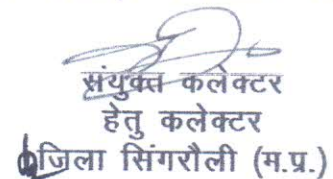 संयुक्त कलेक्टर
हेतु कलेक्टर
जिला सिंगरौली (म.प्र.)